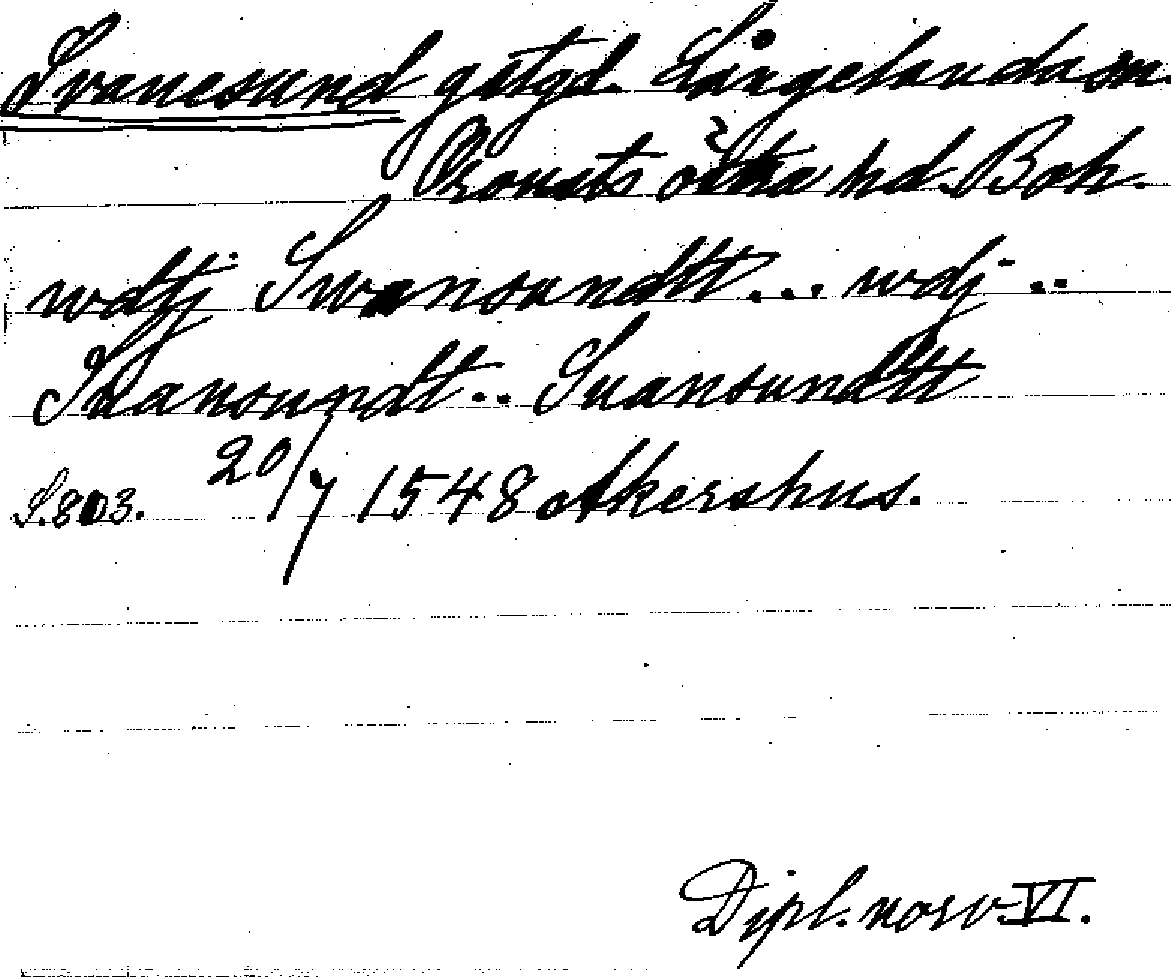 Svanesund gstgd. Långelanda sn
Orousts östra hd. Boh.
wdtj Swansundtt... wdj ..
Suansundt.. Suansundtt
S. 803. 20/7 1548 Akershus.
Dipl. norv. VI.